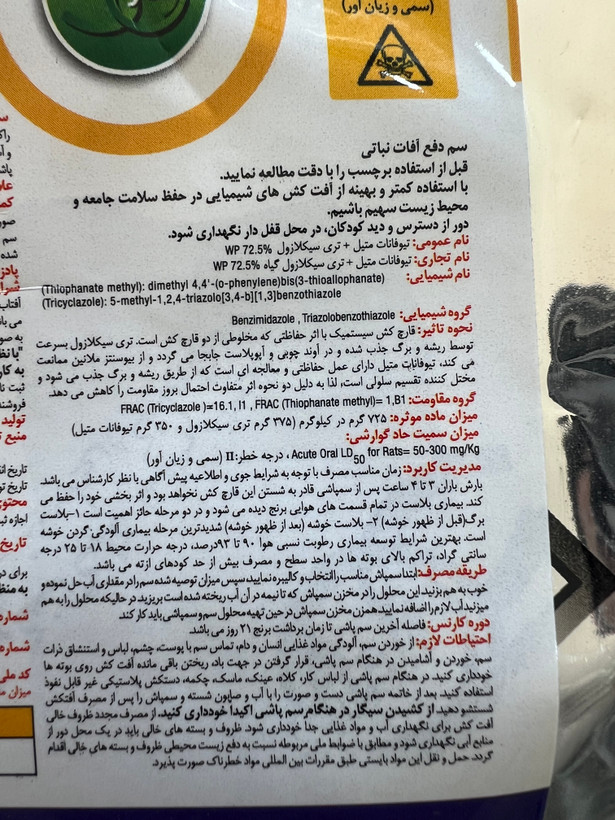 (سمی و زیان آور)
سم دفع آفات نباتی
قبل از استفاده برچسب را با دقت مطالعه نمایید.
با استفاده کمتر و بهینه از آفت کش های شیمیایی در حفظ سلامت جامعه و
محیط زیست سهیم باشیم.
دور از دسترس و دید کودکان، در محل قفل دار نگهداری شود.
نام عمومی: تیوفانات متیل + تری سیکلازول WP 72.5%
نام تجاری: تیوفانات متیل + تری سیکلازول گیاه WP 72.5%
نام شیمیایی: (Thiophanate methyl): dimethyl 4,4'-(o-phenylene)bis(3-thioallophanate)
(Tricyclazole): 5-methyl-1,2,4-triazolo[3,4-b][1,3]benzothiazole
گروه شیمیایی: Benzimidazole , Triazolobenzothiazole
نحوه تاثیر: قارچ کش سیستمیک با اثر حفاظتی که مخلوطی از دو قارچ کش است. تری سیکلازول بسرعت
توسط ریشه و برگ جذب شده و در آوند چوبی و آپوپلاست جابجا می گردد و از بیوسنتز ملانین ممانعت
می کند، تیوفانات متیل دارای عمل حفاظتی و معالجه ای است که از طریق ریشه و برگ جذب می شود و
مختل کننده تقسیم سلولی است، لذا به دلیل دو نحوه اثر متفاوت احتمال بروز مقاومت را کاهش می دهد.
گروه مقاومت: FRAC (Tricyclazole )=16.1, I1 , FRAC (Thiophanate methyl)= 1,B1
میزان ماده موثره: ۷۲۵ گرم در کیلوگرم (۳۷۵ گرم تری سیکلازول و ۳۵۰ گرم تیوفانات متیل)
میزان سمیت حاد گوارشی:
Acute Oral LD50 for Rats= 50-300 mg/Kg ، درجه خطر: II (سمی و زیان آور)
مدیریت کاربرد: زمان مناسب مصرف با توجه به شرایط جوی و اطلاعیه پیش آگاهی یا نظر کارشناس می باشد.
بارش باران ۳ تا ۴ ساعت پس از سمپاشی قادر به شستن این قارچ کش نخواهد بود و اثر بخشی خود را حفظ می
کند. بیماری بلاست در تمام قسمت های هوایی برنج دیده می شود و در دو مرحله حائز اهمیت است ۱-بلاست
برگ(قبل از ظهور خوشه) ۲- بلاست خوشه (بعد از ظهور خوشه) شدیدترین مرحله بیماری آلودگی گردن خوشه
است. بهترین شرایط توسعه بیماری رطوبت نسبی هوا ۹۰ تا ۹۳درصد، درجه حرارت محیط ۱۸ تا ۲۵ درجه
سانتی گراد، تراکم بالای بوته ها در واحد سطح و مصرف بیش از حد کودهای ازته می باشد.
طریقه مصرف: ابتدا سمپاش مناسب را انتخاب و کالیبره نمایید، سپس میزان توصیه شده سم را در مقداری آب حل نموده و
خوب به هم بزنید. این محلول را در مخزن سمپاش که تا نیمه در آن آب ریخته شده است بریزید. در حالیکه محلول را به هم
میزنید آب لازم را اضافه نمایید. همزن مخزن سمپاش در حین تهیه محلول سم و سمپاشی باید کار کند.
دوره کارنس: فاصله آخرین سم پاشی تا زمان برداشت برنج ۲۱ روز می باشد.
احتیاطات لازم: از خوردن سم، آلودگی مواد غذایی انسان و دام، تماس سم با پوست، چشم، لباس و استنشاق ذرات
سم، خوردن و آشامیدن در هنگام سم پاشی، قرار گرفتن در جهت باد، ریختن باقی مانده آفت کش روی بوته ها
خودداری کنید. در هنگام سم پاشی از لباس کار، کلاه، عینک، ماسک، چکمه، دستکش پلاستیکی غیر قابل نفوذ
استفاده کنید. بعد از خاتمه سم پاشی دست و صورت را با آب و صابون شسته و سمپاش را پس از مصرف آفتکش
شستشو دهید. از کشیدن سیگار در هنگام سم پاشی اکیدا خودداری کنید. از مصرف مجدد ظروف خالی
آفت کش برای نگهداری آب و مواد غذایی جدا خودداری شود. ظروف و بسته های خالی باید در یک محل دور از
منابع آبی نگهداری شود و مطابق با ضوابط ملی مربوطه نسبت به دفع زیست محیطی ظروف و بسته های خالی اقدام
گردد. حمل و نقل این مواد بایستی طبق مقررات بین المللی مواد خطرناک صورت پذیرد.